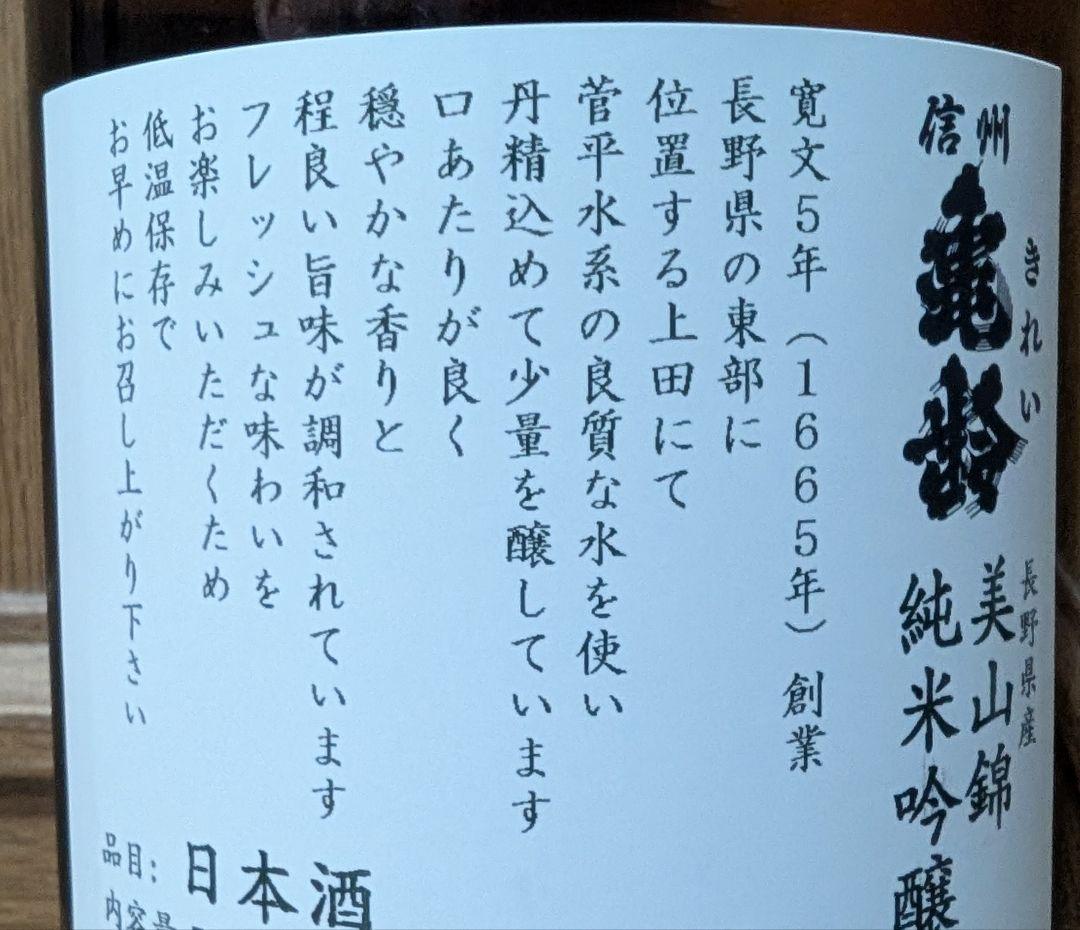 信州
亀齢
きれい
長野県産
美山錦
純米吟醸
寛文5年（1665年）創業
長野県の東部に
位置する上田にて
菅平水系の良質な水を使い
丹精込めて少量を醸しています
口あたりが良く
穏やかな香りと
程良い旨味が調和されています
フレッシュな味わいを
お楽しみいただくため
低温保存で
お早めにお召し上がり下さい
品目：日本酒
内容量